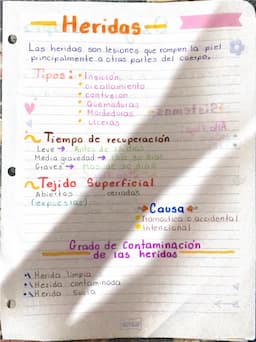 Heridas
Las heridas son lesiones que rompen la piel
principalmente a otras partes del cuerpo.
Tipos: Insición
cicallamiento
contusion
Quemaduras
Mordeduras
ulceras
Tiempo de recuperación
Leve → Antes de 10 dias
Media gravedad →
Graves → Mas de 30 dias
Tejido Superficial
Abiertas cerradas
(expuestas)
Causa
Tramatica o accidental
Intencional
Grado de Contaminación
de las heridas
Herida limpia
Herida contaminada
Herida Sucia